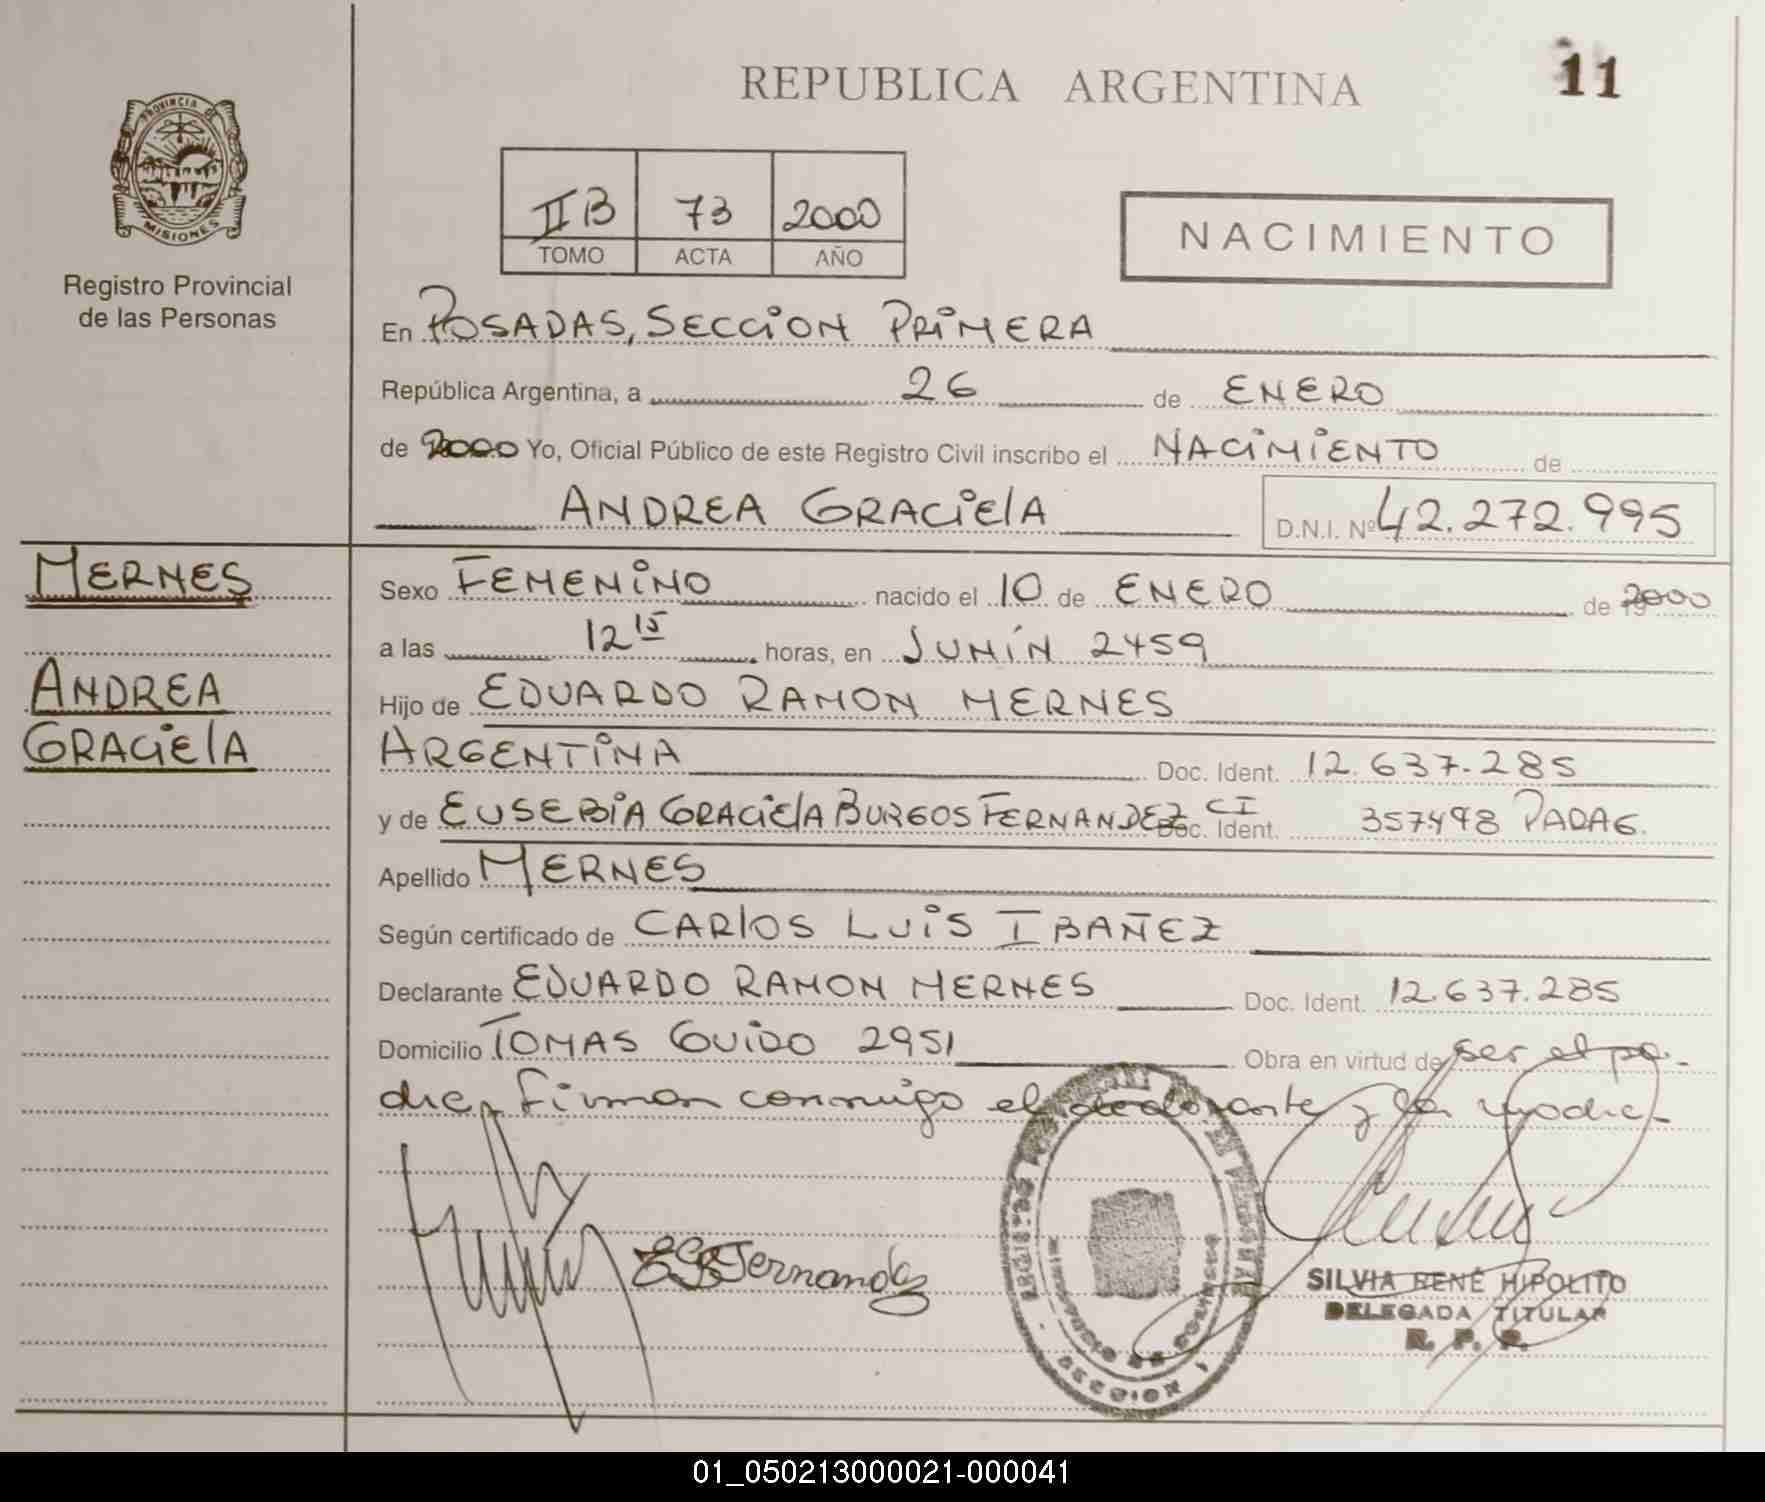 REPUBLICA ARGENTINA
11
PROVINCIA DE
MISIONES
Registro Provincial
de las Personas
II B 73 2000
TOMO ACTA AÑO
NACIMIENTO
En POSADAS, SECCION PRIMERA
República Argentina, a 26 de ENERO
de 2000 Yo, Oficial Público de este Registro Civil inscribo el NACIMIENTO de
ANDREA GRACIELA D.N.I. Nº 42.272.995
MERNES
ANDREA
GRACIELA
Sexo FEMENINO nacido el 10 de ENERO de 2000
a las 12 15 horas, en JUNÍN 2459
Hijo de EDUARDO RAMON MERNES
ARGENTINA Doc. Ident. 12.637.285
y de EUSEBIA GRACIELA BURGOS FERNANDEZ CI Doc. Ident. 357.498 PARAG.
Apellido MERNES
Según certificado de CARLOS LUIS IBAÑEZ
Declarante EDUARDO RAMON MERNES Doc. Ident. 12.637.285
Domicilio TOMAS GUIDO 2951 Obra en virtud de ser el pa-
dre, firman conmigo el declarante y la madre-
EGBFernandez
SILVIA RENÉ HIPOLITO
DELEGADA TITULAR
R. P. P.
SECCION 1
01_050213000021-000041